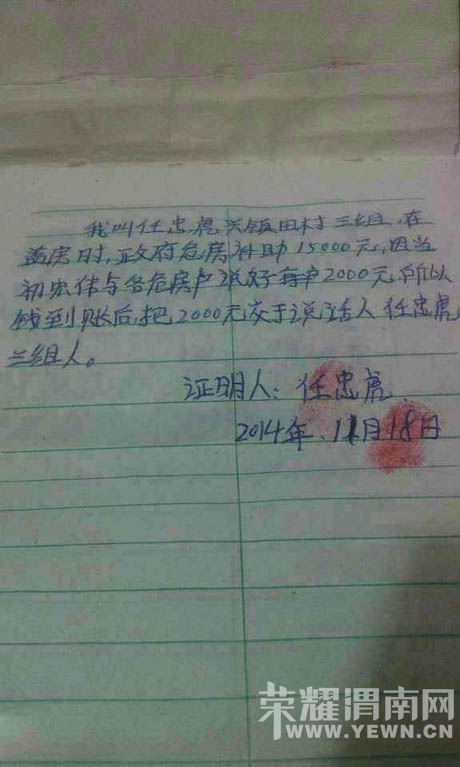 我叫任忠虎兴镇田村三组,在
盖房时,政府危房补助15000元,因当
初宏伟与各危房户说好每户2000元,所以
钱到账后,把2000元交于说话人任忠虎,
三组人。
证明人:任忠虎
2014年.11月18日
荣耀渭南网
WWW.YEWN.CN